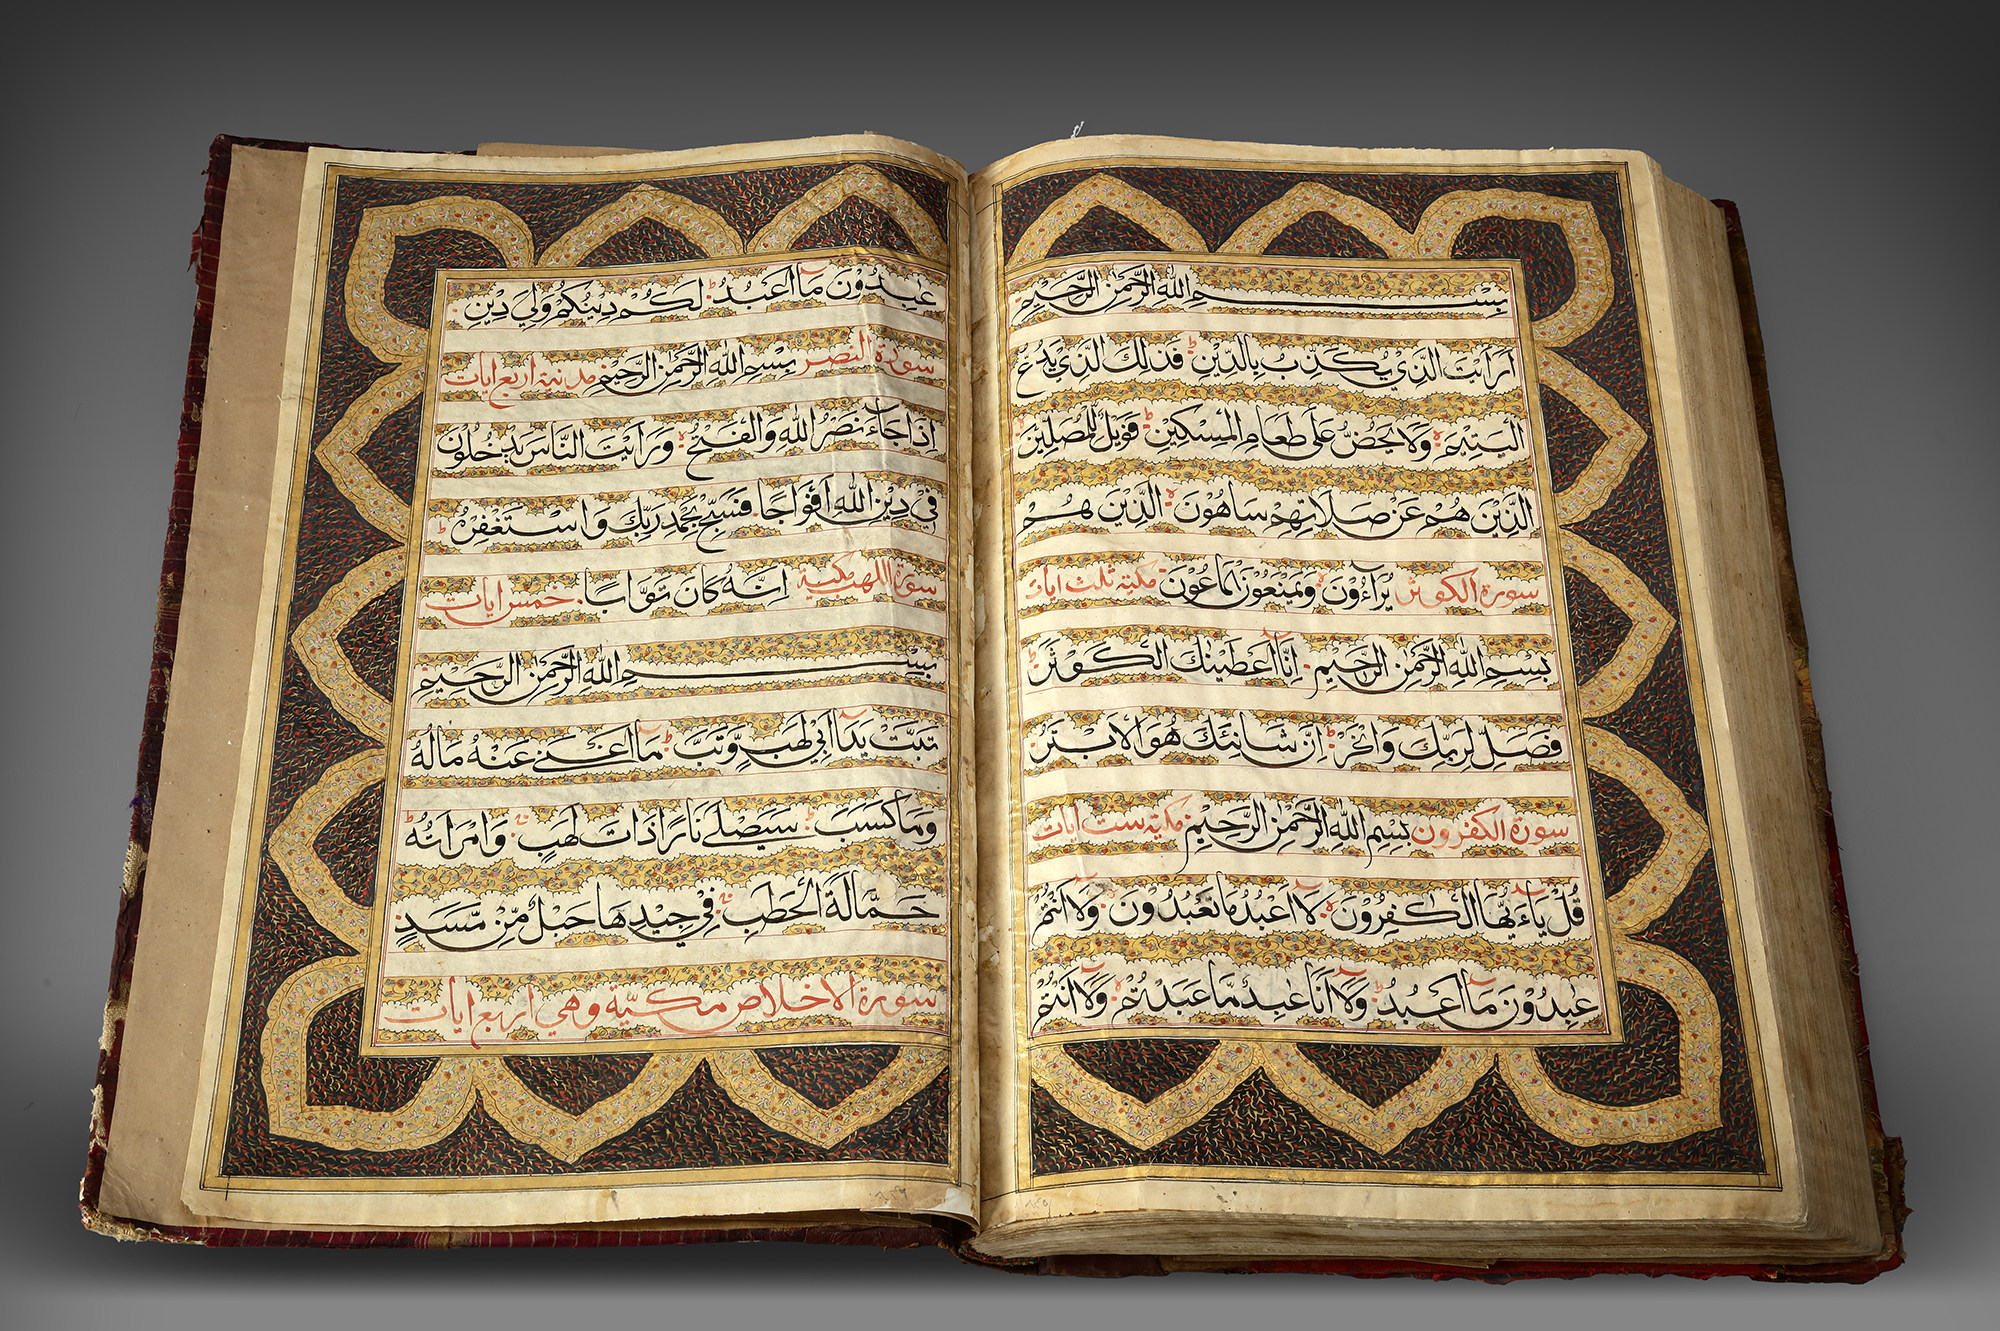 بِسْمِ اللهِ الرَّحْمٰنِ الرَّحِيْمِ
اَرَاَيْتَ الَّذِيْ يُكَذِّبُ بِالدِّيْنِ ط فَذٰلِكَ الَّذِيْ يَدُعُّ
الْيَتِيْمَ ه وَلَا يَحُضُّ عَلٰى طَعَامِ الْمِسْكِيْنِ ط فَوَيْلٌ لِّلْمُصَلِّيْنَ
الَّذِيْنَ هُمْ عَنْ صَلَاتِهِمْ سَاهُوْنَ ه الَّذِيْنَ هُمْ
سورة الكوثر يُرَآءُوْنَ ه وَيَمْنَعُوْنَ الْمَاعُوْنَ مكية ثلث ايات
بِسْمِ اللهِ الرَّحْمٰنِ الرَّحِيْمِ اِنَّا اَعْطَيْنٰكَ الْكَوْثَرَ ط
فَصَلِّ لِرَبِّكَ وَانْحَرْ ط اِنَّ شَانِئَكَ هُوَ الْاَبْتَرُ
سورة الكفرون بِسْمِ اللهِ الرَّحْمٰنِ الرَّحِيْمِ مكية ست ايات
قُلْ يَاءَيُّهَا الْكٰفِرُوْنَ ه لَا اَعْبُدُ مَا تَعْبُدُوْنَ ه وَلَا اَنْتُمْ
عٰبِدُوْنَ مَا اَعْبُدُ ط وَلَا اَنَا عَابِدٌ مَّا عَبَدْتُّمْ ه وَلَا اَنْتُمْ
عٰبِدُوْنَ مَا اَعْبُدُ ط لَكُمْ دِيْنُكُمْ وَلِيَ دِيْنِ
سورة النصر بِسْمِ اللهِ الرَّحْمٰنِ الرَّحِيْمِ مدنية اربع ايات
اِذَا جَآءَ نَصْرُ اللهِ وَالْفَتْحُ ه وَرَاَيْتَ النَّاسَ يَدْخُلُوْنَ
فِيْ دِيْنِ اللهِ اَفْوَاجًا فَسَبِّحْ بِحَمْدِ رَبِّكَ وَاسْتَغْفِرْهُ ط
سورة اللهب مكية اِنَّهُ كَانَ تَوَّابًا خمس ايات
بِسْمِ اللهِ الرَّحْمٰنِ الرَّحِيْمِ
تَبَّتْ يَدَا اَبِيْ لَهَبٍ وَّتَبَّ ط مَا اَغْنٰى عَنْهُ مَالُهُ
وَمَا كَسَبَ ط سَيَصْلٰى نَارًا ذَاتَ لَهَبٍ وَامْرَاَتُهُ ط
حَمَّالَةَ الْحَطَبِ فِيْ جِيْدِهَا حَبْلٌ مِّنْ مَّسَدٍ
سورة الاخلاص مكية وهي اربع ايات